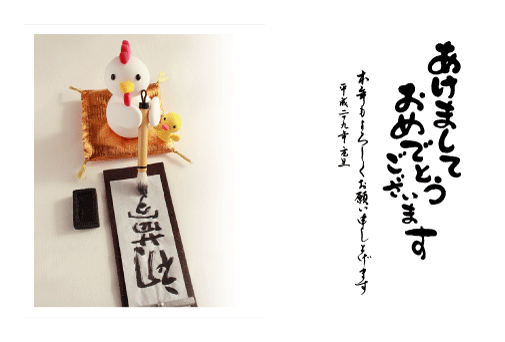 あけまして
おめでとう
ございます
本年もよろしくお願い申し上げます
平成二十九年 元旦